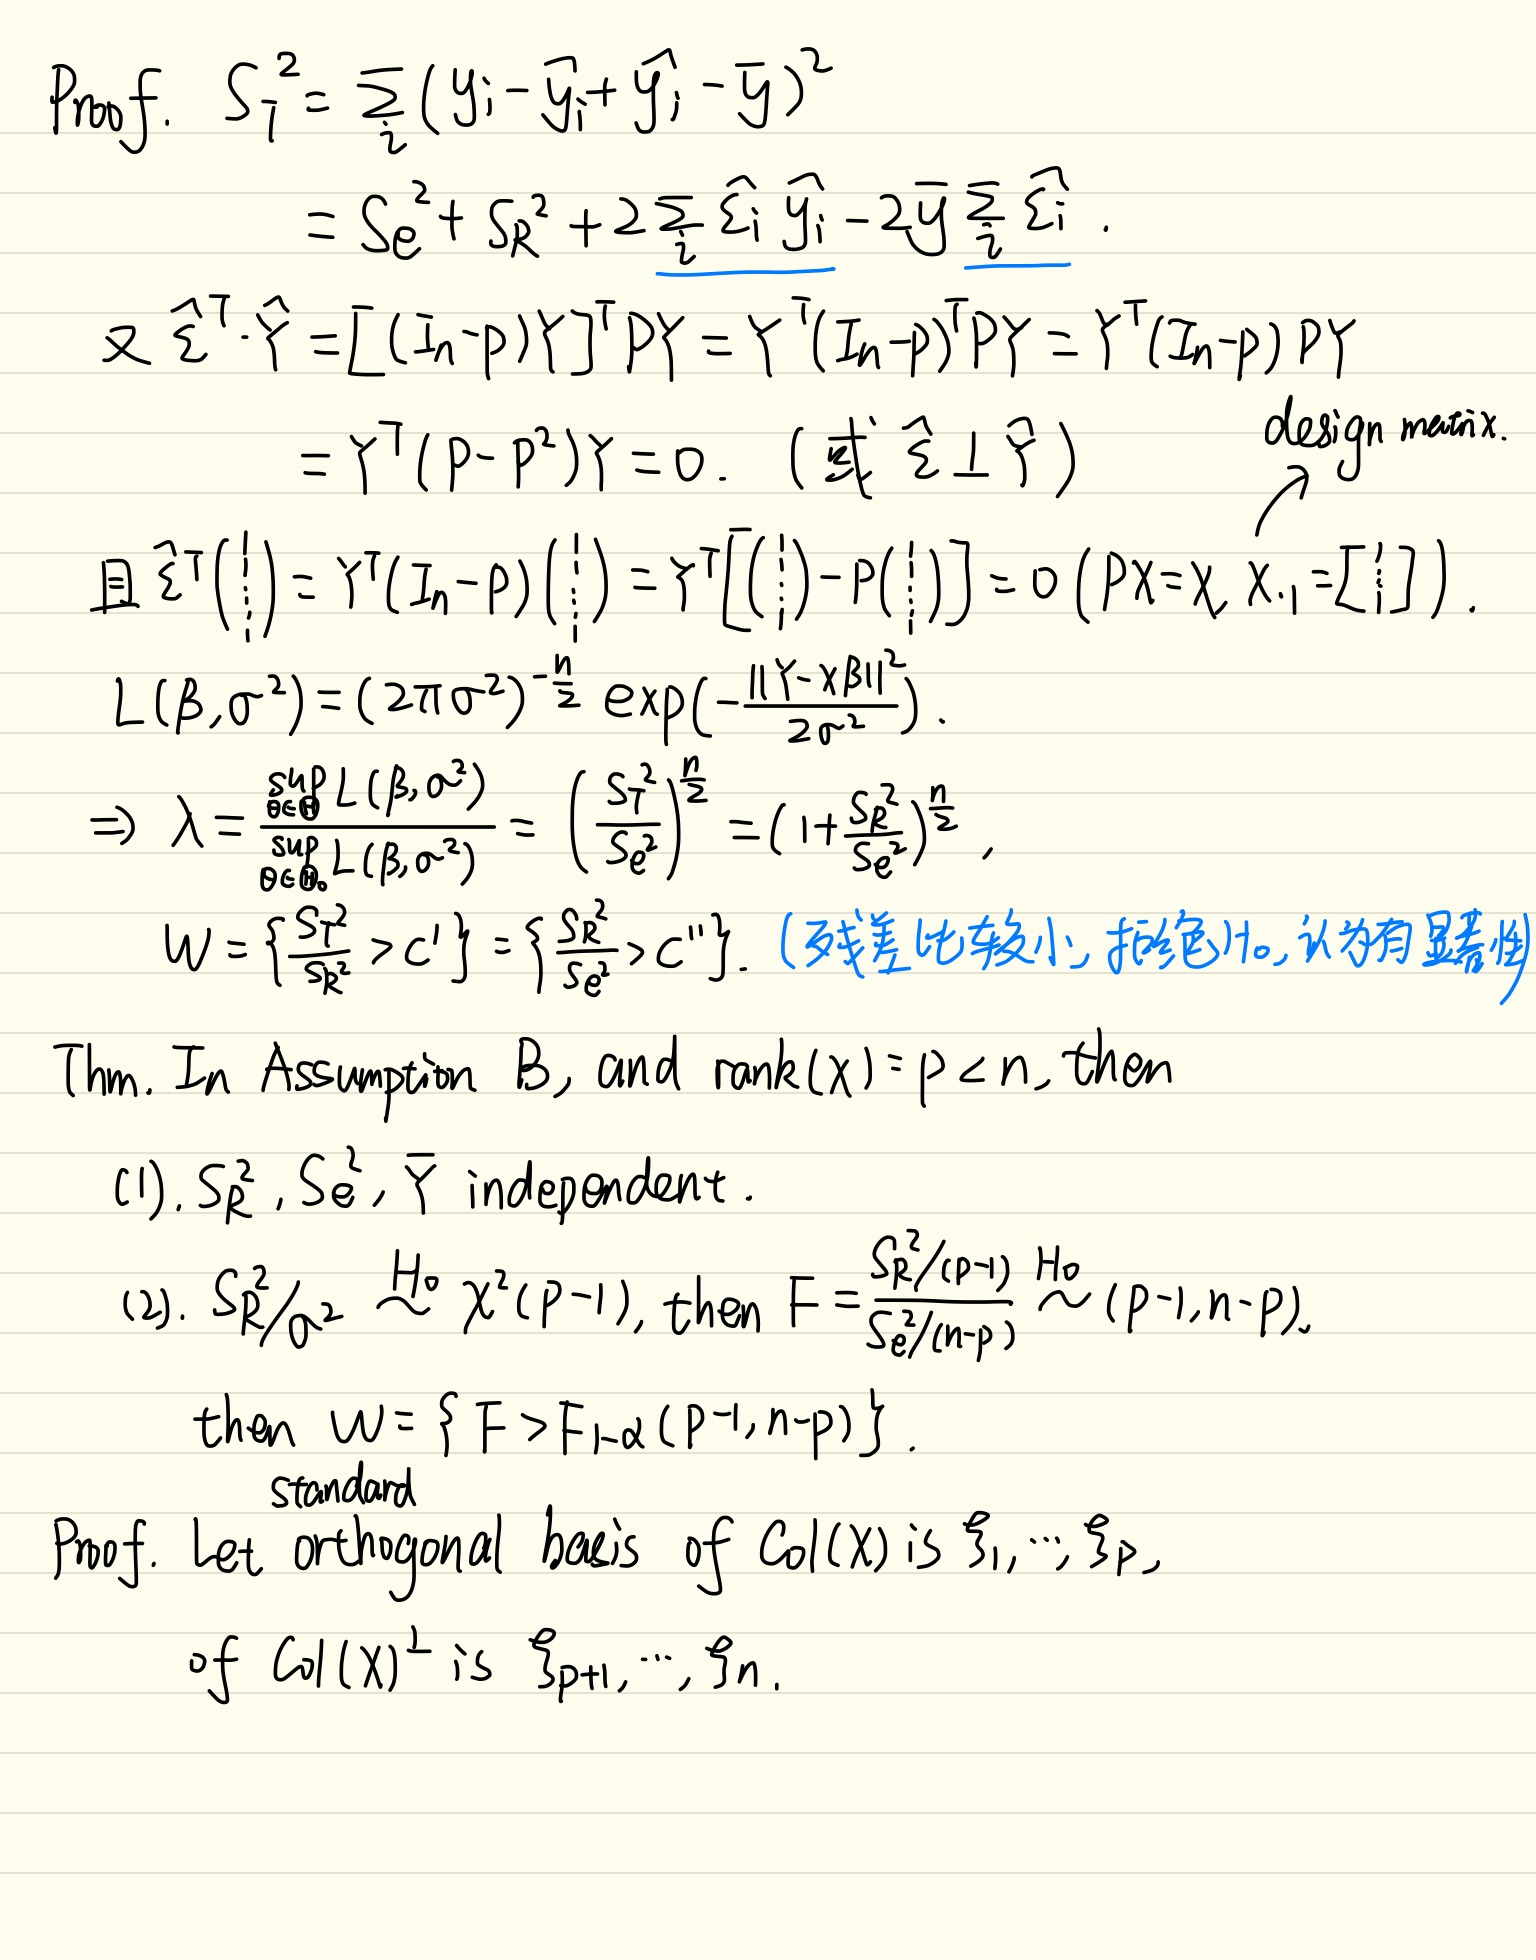 Proof. S_T² = Σ_i (y_i - ŷ_i + ŷ_i - ȳ)²
= S_e² + S_R² + 2 Σ_i ε̂_i ŷ_i - 2ȳ Σ_i ε̂_i .
又 ε̂^T · Ŷ = [(I_n - P)Y]^T PY = Y^T (I_n - P)^T PY = Y^T (I_n - P) PY
design matrix.
= Y^T (P - P²)Y = 0. (或 ε̂ ⊥ Ŷ)
且 ε̂^T (1 ⋮ 1) = Y^T (I_n - P) (1 ⋮ 1) = Y^T [(1 ⋮ 1) - P(1 ⋮ 1)] = 0 (PX = X, X_{·1} = [1 ⋮ 1]).
L(β, σ²) = (2πσ²)^{-n/2} exp(- ||Y - Xβ||² / 2σ²).
⇒ λ = sup_{θ∈Θ} L(β, σ²) / sup_{θ∈Θ₀} L(β, σ²) = (S_T² / S_e²)^{n/2} = (1 + S_R² / S_e²)^{n/2},
W = {S_T² / S_R² > c'} = {S_R² / S_e² > c''}. (残差比较小, 拒绝H₀, 认为有显著性)
Thm. In Assumption B, and rank(X) = p < n, then
(1). S_R², S_e², Ȳ independent.
(2). S_R²/σ² ~^{H₀} χ²(p-1), then F = S_R²/(p-1) / S_e²/(n-p) ~^{H₀} (p-1, n-p).
then W = {F > F_{1-α}(p-1, n-p)}.
standard
Proof. Let orthogonal basis of Col(X) is ξ₁, ⋯, ξ_p,
of Col(X)^⊥ is ξ_{p+1}, ⋯, ξ_n.